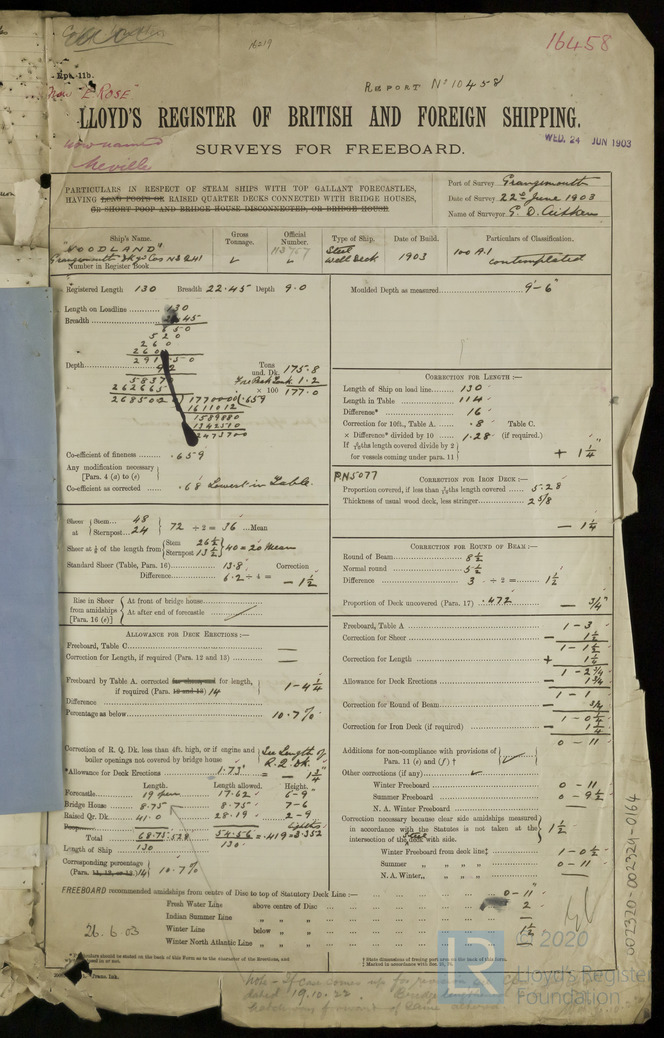 16219
16458
Report No 10458
Now "E. Rose"
LLOYD'S REGISTER OF BRITISH AND FOREIGN SHIPPING.
now named
Neville
WED. 24 JUN 1903
SURVEYS FOR FREEBOARD.
PARTICULARS IN RESPECT OF STEAM SHIPS WITH TOP GALLANT FORECASTLES,
HAVING LONG POOPS OR RAISED QUARTER DECKS CONNECTED WITH BRIDGE HOUSES,
OR SHORT POOP AND BRIDGE HOUSE DISCONNECTED, OR BRIDGE HOUSE
Port of Survey Grangemouth
Date of Survey 22nd June 1903
Name of Surveyor G. D. Aitken
Ship's Name. Gross Tonnage. Official Number. Type of Ship. Date of Build. Particulars of Classification.
"WOODLAND" Steel Well Deck 1903 100 A.1 contemplated
Grangemouth Dkyd Cos No 241
Number in Register Book
Registered Length 130 Breadth 22.45 Depth 9.0
Moulded Depth as measured 9'-6"
Length on Loadline 130
Breadth 22.45
650
520
260
260
Depth
Tons und. Dk. 175.8
Fore Peak Tank 1.2
× 100 177.0
5837
262665
268502 ) 1770000 ( .659
1611012
1589880
1342510
2473700
Co-efficient of fineness .659
Any modification necessary [Para. 4 (a) to (e)
Co-efficient as corrected .68 Lowest in Table.
CORRECTION FOR LENGTH :—
Length of Ship on load line 130
Length in Table 114
Difference* 16
Correction for 10ft., Table A. .8 Table C.
× Difference* divided by 10 1.28 (if required.)
If 6/10ths length covered divide by 2 for vessels coming under para. 11 + 1¼"
PN5077
CORRECTION FOR IRON DECK :—
Proportion covered, if less than 7/10ths length covered 5.28
Thickness of usual wood deck, less stringer 2 5/8
— 1¼
Sheer at Stem 48
Sternpost 24
72 ÷ 2 = 36 Mean
Sheer at ⅛ of the length from Stem 26½
Sternpost 13½
40 = 20 Mean
Standard Sheer (Table, Para. 16) 13.8 Correction
Difference 6.2 ÷ 4 = — 1½
CORRECTION FOR ROUND OF BEAM :—
Round of Beam 8½
Normal round 5½
Difference 3 ÷ 2 = 1½
Proportion of Deck uncovered (Para. 17) .472 — ¾"
Rise in Sheer from amidships [Para. 16 (e)]
At front of bridge house
At after end of forecastle
ALLOWANCE FOR DECK ERECTIONS :—
Freeboard, Table C
Correction for Length, if required (Para. 12 and 13)
Freeboard by Table A. corrected for sheer and for length, if required (Para. 12 and 13) 14 1-4¼
Difference
Percentage as below 10.7%
Correction of R. Q. Dk. less than 4ft. high, or if engine and boiler openings not covered by bridge house See Length of R.Q. Dk.
*Allowance for Deck Erections 1.73 = — 1¾"
Length. Length allowed. Height.
Forecastle 19 17.62 6-9"
Bridge House 8.75 8.75 7-6
Raised Qr. Dk. 41.0 28.19 2-9
Total 68.75 .528 54.56 = .419 = 3.352
Length of Ship 130 130
Corresponding percentage (Para. 11, 12, or 13) 14 10.7%
Freeboard, Table A 1 - 3
Correction for Sheer — 1½
1 - 1½
Correction for Length + 1¼
1 - 2¾
Allowance for Deck Erections — 1¾
1 - 1
Correction for Round of Beam — ¾
1 - 0¼
Correction for Iron Deck (if required) — 1¼
0 - 11
Additions for non-compliance with provisions of Para. 11 (e) and (f) †
Other corrections (if any)
Winter Freeboard 0 - 11
Summer Freeboard 0 - 9½
N. A. Winter Freeboard
Correction necessary because clear side amidships measured in accordance with the Statutes is not taken at the intersection of the deck with side. 1½
Winter Freeboard from deck line‡ 1 - 0½
Summer „ „ „ 0 - 11
N.A. Winter „ „ „
FREEBOARD recommended amidships from centre of Disc to top of Statutory Deck Line :— 0-11"
Fresh Water Line above centre of Disc 2
Indian Summer Line „ „
Winter Line below „ 1½
Winter North Atlantic Line „ „
26.6.03
Note - If case comes up for revision
dated 19.10.22. Bridge length
002320-002329-0164
LR
© 2020
Lloyd's Register
Foundation